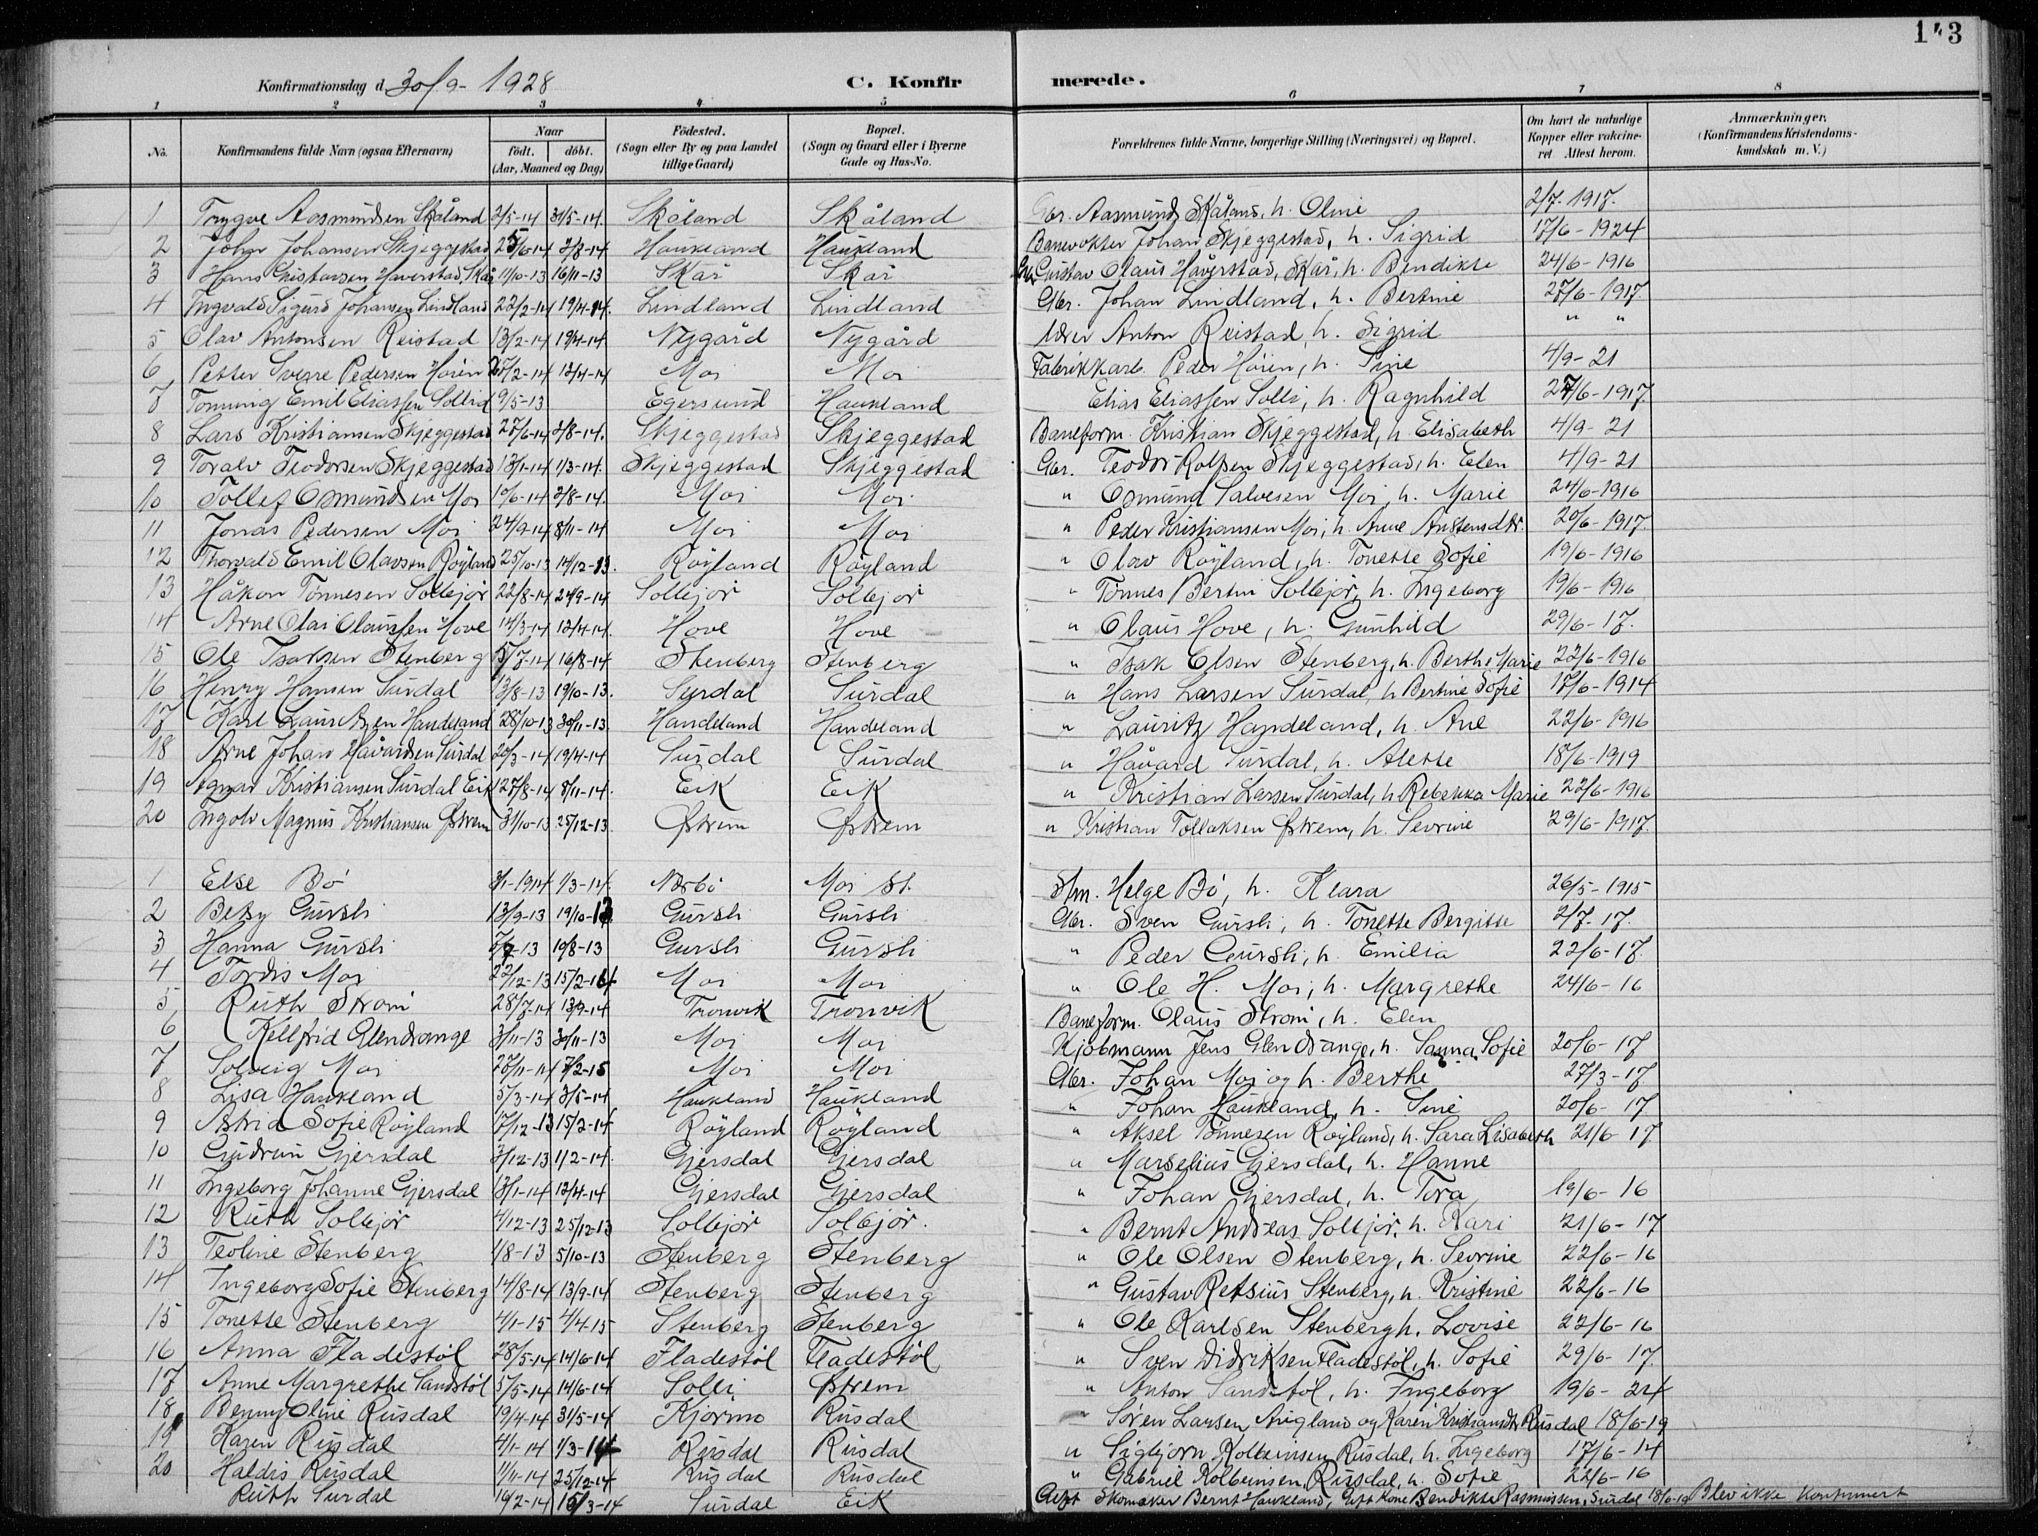 143
Konfirmationsdag d. 30/9 - 1928 C. Konfirmerede.
1 2 3 4 5 6 7 8
No. Konfirmandens fulde Navn (ogsaa Efternavn) Naar födt. döbt. (Aar, Maaned og Dag) Födested. (Sogn eller By og paa Landet tillige Gaard) Bopæl. (Sogn og Gaard eller i Byerne Gade og Hus-No. Forældrenes fulde Navne, borgerlige Stilling (Næringsvei) og Bopæl. Om havt de naturlige Kopper eller vaccineret. Attest herom. Anmærkninger. (Konfirmandens Kristendomskundskab m. V.)
1 Trygve Aasmundsen Skåland 2/5-14 31/5-14. Skåland Skåland Gbr. Aasmund Skåland, h. Oline 2/7-1917.
2 Johan Johansen Skjeggestad 25/6-14 2/8-14 Haukland Haukland Banevokter Johan Skjeggestad, h. Sigrid 17/6-1924
3 Hans Gustavsen Haverstad, Skår 11/10-13 16/11-13 Skår Skår Gbr. Gustav Olaus Håverstad, Skår, h. Bendikte 24/6-1916
4 Ingvald Sigurd Johansen Lindland 22/2-14 19/4-14. Lindland Lindland Gbr. Johan Lindland, h. Bertine 27/6-1917.
5 Olav Antonsen Reistad 13/2-14 19/4-14 Nygård Nygård Lærer Anton Reistad, h. Sigrid " "
6 Petter Sverre Pedersen Hören 27/2-14 13/4-14 Moi Moi Fabrikkarb. Peder Hören, h. Sine 4/9-21
7 Tonning Emil Eliassen Solli 9/5-13 Egersund Haukland Elias Eliassen Solli, h. Ragnhild 27/6-1917
8 Lars Kristiansen Skjeggestad 27/6-14 2/8-14. Skjeggestad Skjeggestad Baneform. Kristian Skjeggestad, h. Elisabeth 4/9-21
9 Toralv Teodorsen Skjeggestad 13/1-14 1/3-14. Skjeggestad Skjeggestad Gbr. Teodor Rolfsen Skjeggestad, h. Elen 4/9-21
10 Tollef Osmundsen Moi 10/6-14 2/8-14. Moi Moi " Osmund Salvesen Moi, h. Marie 24/6-1916
11 Jonas Pedersen Moi 24/9-14 8/11-14 Moi Moi " Peder Kristiansen Moi, h. Anne Austensdtr. 20/6-1917.
12 Thorvald Emil Olavsen Röyland 25/10-13 14/12-13. Röyland Röyland " Olav Röyland, h. Tonette Sofie 19/6-1916
13 Håkon Tönnesen Sollejör 22/8-14 24/9-14 Sollejör Sollejör " Tönnes Bertin Sollejör, h. Ingeborg 19/6-1916
14 Arne Olai Olaussen Hove 14/3-14 12/4-14. Hove Hove " Olaus Hove, h. Gunhild 29/6-17.
15 Ole Isaksen Stenberg 5/7-14 16/8-14 Stenberg Stenberg " Isak Elsen Stenberg, h. Berthe Marie 22/6-1916
16 Henry Hansen Surdal 13/8-13 19/10-13. Surdal Surdal " Hans Larsen Surdal, h. Bertine Sofie 17/6-1914
17 Karl Lauritzen Handeland 28/10-13 30/11-13 Handeland Handeland " Lauritz Handeland, h. Ane 22/6-1916
18 Arne Johan Håvardsen Surdal 20/3-14 19/4-14 Surdal Surdal " Håvard Surdal, h. Alette 18/6-1919
19 Agnar Kristiansen Surdal Eik 27/8-14 8/11-14. Eik Eik " Kristian Larsen Surdal, h. Rebekka Marie 22/6-1916
20 Ingolv Magnus Kristiansen Østrem 31/10-13 25/12-13. Østrem Østrem " Kristian Tollaksen Østrem, h. Sevrine 29/6-1917
1 Else Bö 3/1-1914 1/3-14. Nærbö Moi st. Stm. Helge Bö, h. Klara 26/5-1915
2 Betzy Gursli 13/9-13 19/10-13 Gursli Gursli Gbr. Sven Gursli, h. Tonette Bergitte 2/7-17.
3 Hanna Gursli 5/7-13 10/8-13 Gursli Gursli " Peder Gursli, h. Emilia 22/6-17.
4 Tordis Moi 22/12-13 15/2-14 Moi Moi " Ole H. Moi, h. Margrethe 24/6-16
5 Ruth Strøm 28/7-14 13/9-14 Tronvik Tronvik Baneform. Olaus Strøm, h. Elen
6 Kellfrid Glendrange 3/11-13 30/11-13 Moi Moi Kjöbmann Jens Glendrange, h. Sanna Sofie 20/6-17
7 Solveig Moi 20/11-14 7/2-15 Moi Moi Gbr. Johan Moi og h. Berthe 27/3-17.
8 Lisa Haukland 5/3-14 3/5-14 Haukland Haukland " Johan Haukland, h. Sine 20/6-17
9 Astrid Sofie Röyland 17/12-13 15/2-14 Röyland Röyland " Aksel Tönnesen Röyland, h. Sara Lisabeth 21/6-17
10 Gudrun Gjersdal 3/12-13 1/2-14. Gjersdal Gjersdal " Marselius Gjersdal, h. Hanne
11 Ingeborg Johanne Gjersdal 13/1-14 13/4-14 Gjersdal Gjersdal " Johan Gjersdal, h. Tora 19/6-16
12 Ruth Sollejör 4/12-13 25/12-13 Sollejör Sollejör. " Bernt Andreas Sollejör, h. Kari 21/6-17
13 Teoline Stenberg 1/8-13 5/10-13 Stenberg Stenberg " Ole Olsen Stenberg, h. Sevrine 22/6-16
14 Ingeborg Sofie Stenberg 14/8-14 13/9-14 Stenberg Stenberg " Gustav Retsius Stenberg, h. Kristine 22/6-16
15 Tonette Stenberg 4/1-15 4/4-15 Stenberg Stenberg " Ole Karlsen Stenberg h. Lovise 22/6-16
16 Anna Fladestöl 28/5-14 14/6-14 Fladestöl Fladestöl " Sven Didriksen Fladestöl, h. Sofie 29/6-17.
17 Anne Margrethe Sandstöl 5/5-14 14/6-14 Solli Østrem " Anton Sandstöl, h. Ingeborg 19/6-24
18 Benny Oline Rusdal 19/4-14 31/5-14 Kjörmo Rusdal " Sören Larsen Augland og Karen Kristiansdtr Rusdal 18/6-19
19 Karen Rusdal 4/1-14 1/3-14 Rusdal Rusdal " Sigbjörn Kolbeinsen Rusdal, h. Ingeborg 17/6-14
20 Haldis Rusdal 1/11-14 25/12-14 Rusdal Rusdal " Gabriel Kolbeinsen Rusdal, h. Sofie 22/6-16
Ruth Surdal 16/2-14 15/3-14 Surdal Eik Gift Skomaker Bernt Haukland, Gift Kone Bendikte Rasmussen, Surdal 18/6-19 Blev ikke konfirmert